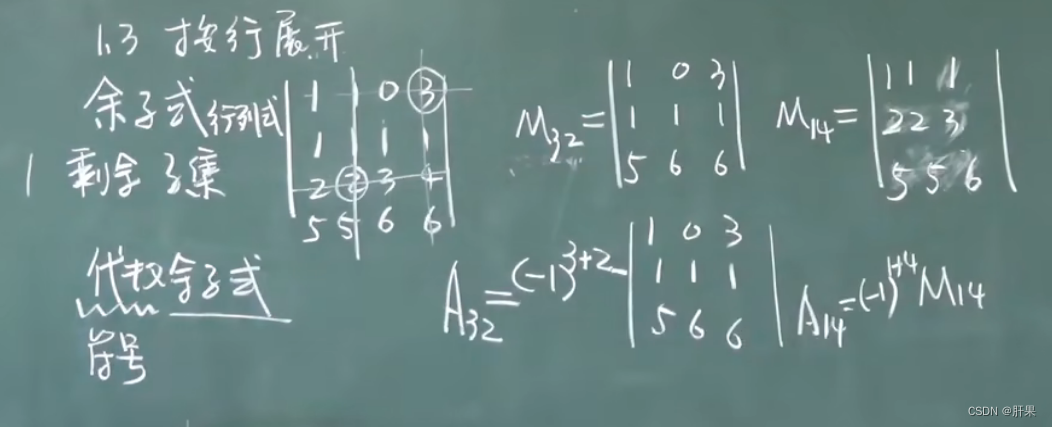 1.3 按行展开
余子式 行列式
1 剩余子集
| 1 1 0 3 |
| 1 1 1 1 |
| 2 2 3 4 |
| 5 5 6 6 |
M32= | 1 0 3 |
| 1 1 1 |
| 5 6 6 |
M14= | 1 1 1 |
| 2 2 3 |
| 5 5 6 |
代数余子式
符号
A32=(-1)^3+2 | 1 0 3 |
| 1 1 1 |
| 5 6 6 |
A14=(-1)^1+4 M14
CSDN @肝果